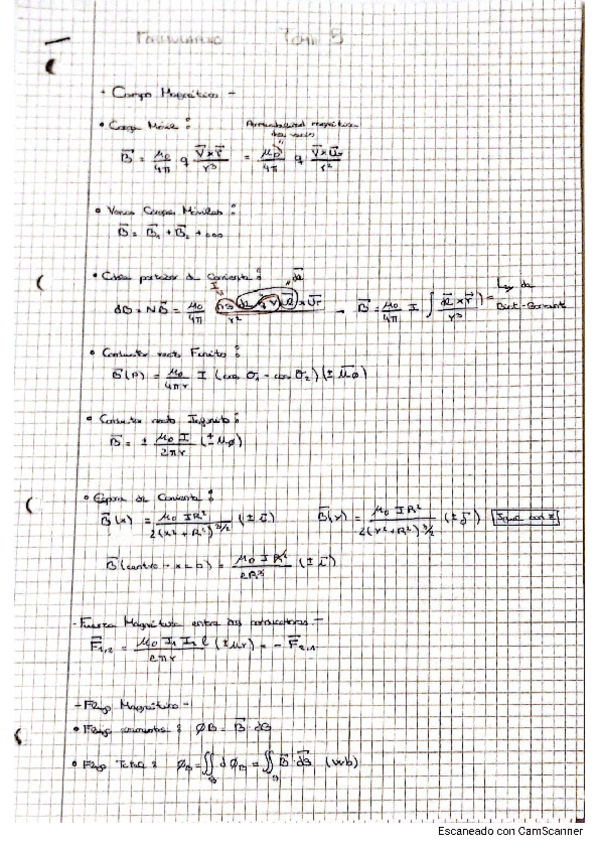 Formulario Tema 5
- Campo Magnético -
• Carga Móvil:
Permeabilidad magnética
del vacío
B⃗ = μ₀/4π q (v⃗×r⃗)/r³ = μ₀/4π q (v⃗×u⃗r)/r²
• Varias Cargas Móviles:
B⃗ = B⃗₁ + B⃗₂ + ...
de Corriente:
I dl⃗
dB = N B⃗ = μ₀/4π
B⃗ = μ₀/4π I ∫ (dl⃗ × r⃗)/r³ = Ley de
Biot-Savart
• Conductor recto Finito:
B⃗(P) = μ₀/4πr I (cos σ₁ - cos σ₂) (± u⃗φ)
• Conductor recto Infinito:
B⃗ = ± μ₀ I/2πr (± u⃗φ)
• Espira de Corriente:
B⃗(x) = μ₀ I R²/2(x² + R²)^3/2 (± i⃗) B⃗(y) = μ₀ I R²/2(y² + R²)^3/2 (± j⃗) Igual con z
B⃗(centro - x = 0) = μ₀ I R²/2R³ (± i⃗)
- Fuerza Magnética entre dos conductores. -
F⃗₁,₂ = μ₀ I₁ I₂ l/2πr (± u⃗r) = - F⃗₂,₁
- Flujo Magnético -
• Flujo elemental: φB = B⃗ · dS⃗
• Flujo Total: φB = ∬s dφB = ∬s B⃗ · dS⃗ (Wb)
Escaneado con CamScanner